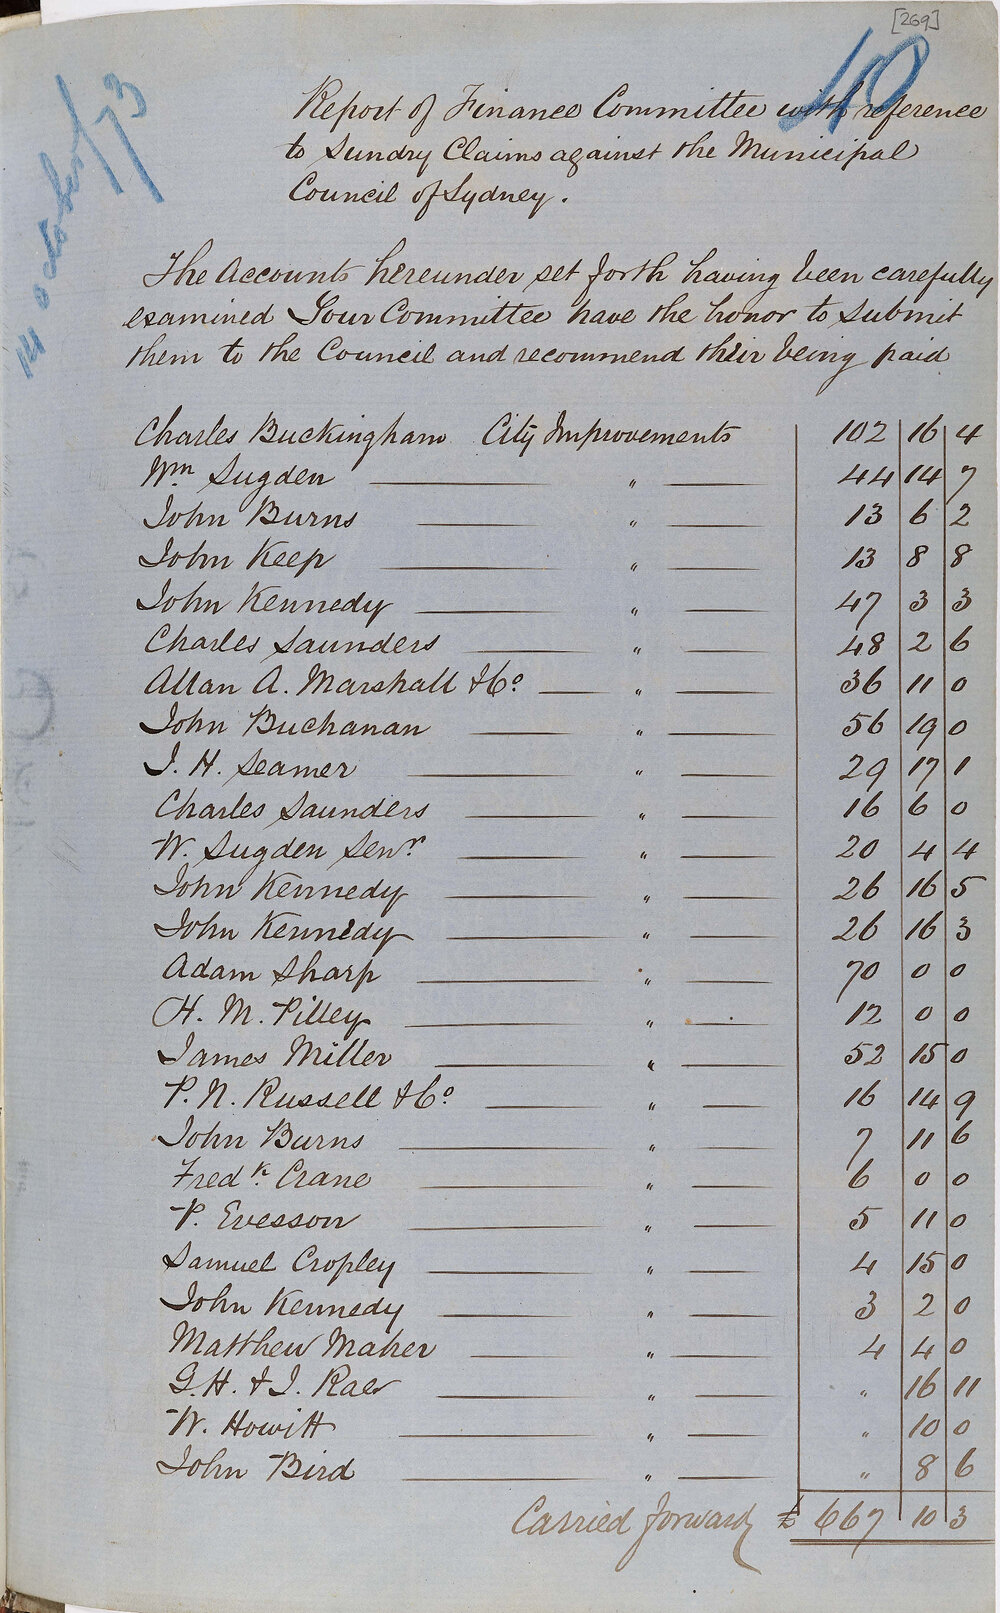 [269]
40
14 October /73
Report of Finance Committee with reference
to Sundry Claims against the Municipal
Council of Sydney.
The Accounts hereunder set forth having been carefully
examined Your Committee have the honor to submit
them to the Council and recommend their being paid
Charles Buckingham City Improvements 102 16 4
Wm Sugden " 44 14 7
John Burns " 13 6 2
John Keep " 13 8 8
John Kennedy " 47 3 3
Charles Saunders " 48 2 6
Allan A. Marshall & Co. " 36 11 0
John Buchanan " 56 19 0
J. H. Seamer " 29 17 1
Charles Saunders " 16 6 0
W. Sugden Senr " 20 4 4
John Kennedy " 26 16 5
John Kennedy " 26 16 3
Adam Sharp " 70 0 0
H. M. Pilley " 12 0 0
James Miller " 52 15 0
P. N. Russell & Co. " 16 14 9
John Burns " 7 11 6
Fredk. Crane " 6 0 0
P. Evesson " 5 11 0
Samuel Cropley " 4 15 0
John Kennedy " 3 2 0
Matthew Maher " 4 4 0
G. H. & J. Rae " " 16 11
W. Howitt " " 10 0
John Bird " " 8 6
Carried forward £ 667 10 3